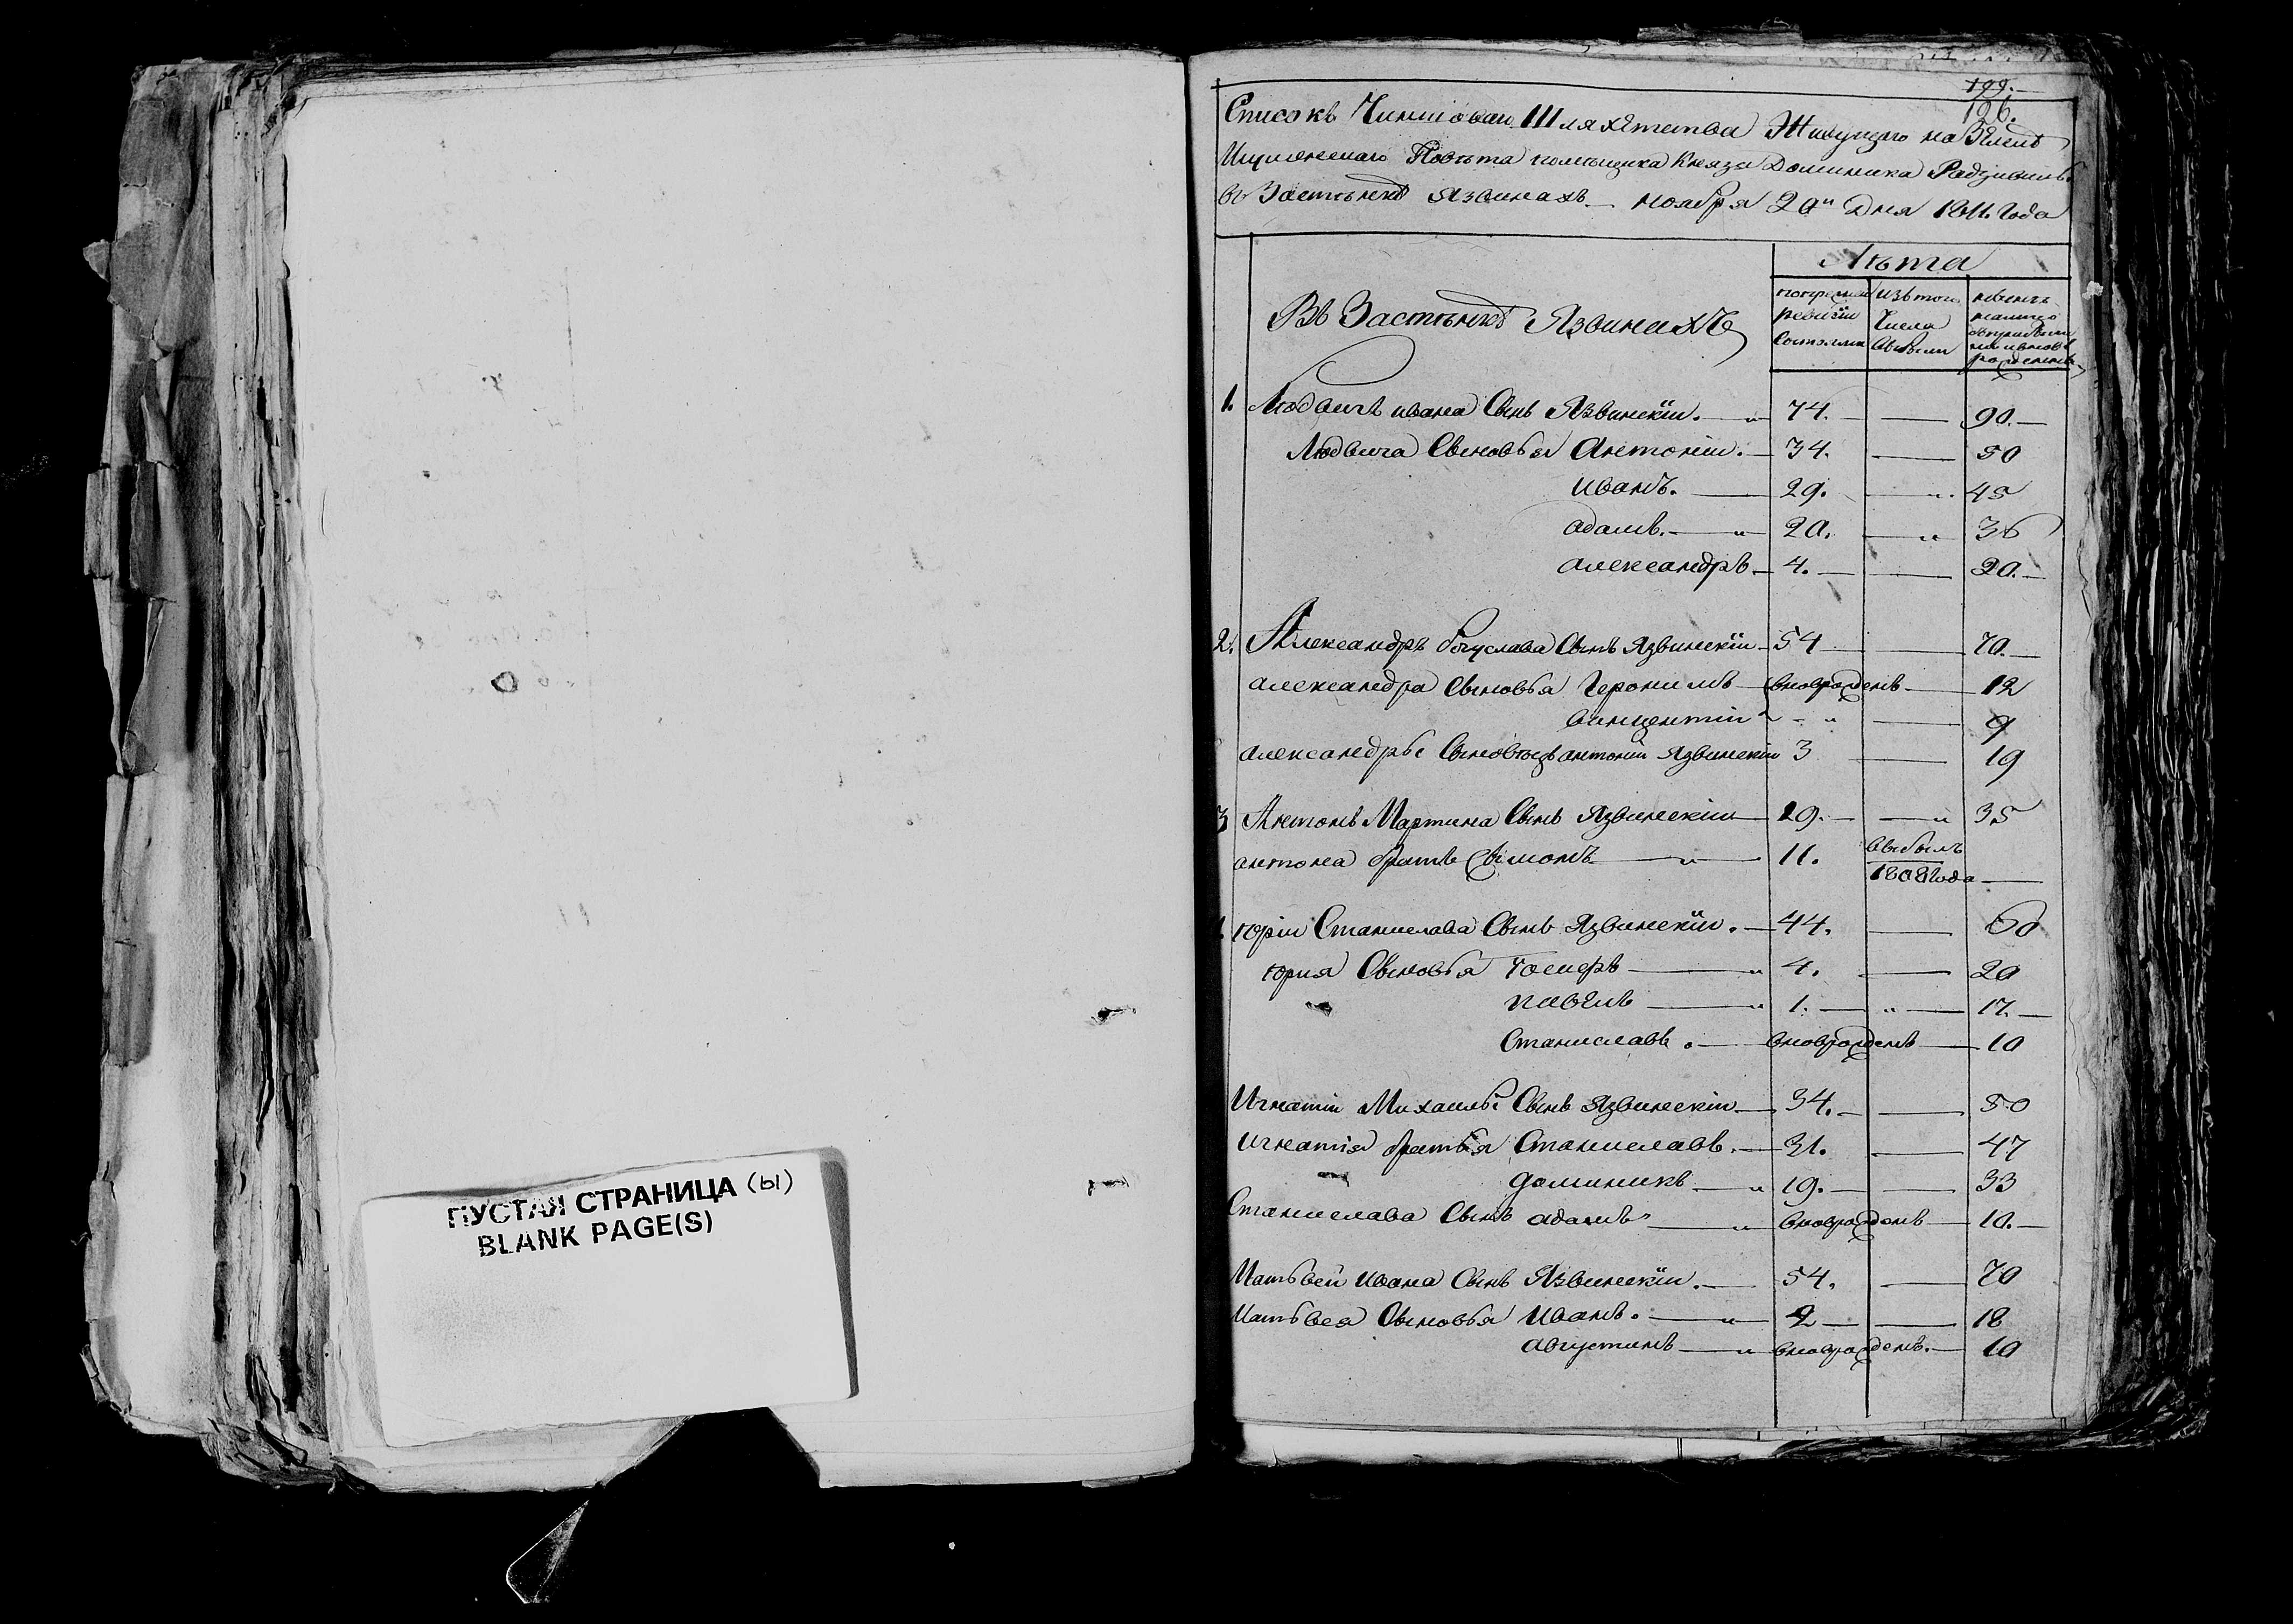 ПУСТАЯ СТРАНИЦА (ы)
BLANK PAGE(S)
199.
196.
Списокъ Чиншовой Шляхетства Живущаго на Земле
Игуменскаго Повѣта помещика Князя Доминика Радзивила
въ Застѣнкѣ Язвинахъ — ноября 20 Дня 1811 Года
Лѣта
Въ Застѣнкѣ Язвинахъ
ревизіи Числа
состояли выбыли
1. Людвигъ ивана Сынъ Язвинскій. — 74. — 90. —
Людвига Сыновья Антоній. — 34. — 50
Иванъ. — 29. — 45
адамъ. — 20. — 36
александръ — 4. — 20. —
2. Александръ богуслава Сынъ Язвинскій — 54 — 70. —
александра Сыновья Геронимъ — вновьрожденъ — 12
винцентій — " — 9
Александръ Сыновецъ антоній Язвинскій 3 — 19
3 Антонъ Мартина Сынъ Язвинскій — 19. — 35
антона братъ Сымонъ — 11. выбылъ
1808 Года —
Юрій Станислава Сынъ Язвинскій. — 44. — 60
Юрия Сыновья Гасперъ — 4. — 20
павелъ — 1. — 17. —
Станиславъ. — вновьрожденъ — 10
Игнатій Михаила Сынъ Язвинскій — 34. — 50
игнатія братья Станиславъ. — 31. — 47
доминикъ — 19. — 33
Станислава Сынъ адамъ — вновьрожденъ — 10. —
Матьвей Ивана Сынъ Язвинскій. — 54. — 70
Матьвея Сыновья Иванъ. — 2 — 18
августинъ — вновьрожденъ. — 10